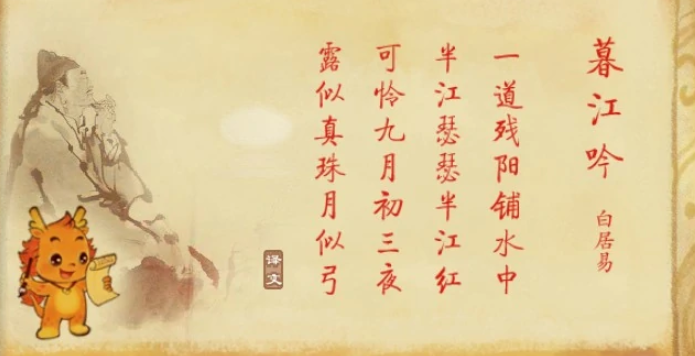 暮江吟
白居易
一道残阳铺水中
半江瑟瑟半江红
可怜九月初三夜
露似真珠月似弓
译文